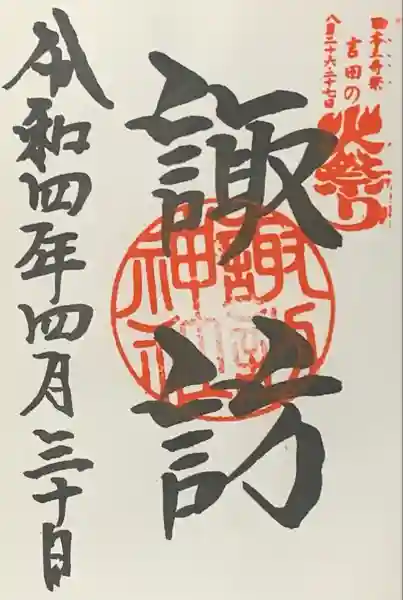 日本三奇祭
吉田の
火祭り
八月二十六・二十七日
諏訪
諏訪
神社
令和四年四月三十日